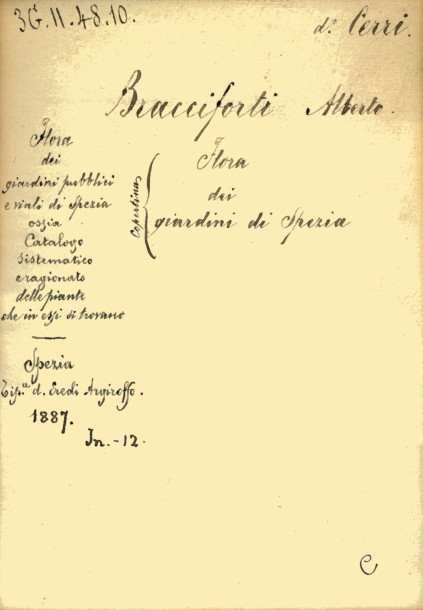 3G.11.48.10.
d.º Cerri.
Bracciforti Alberto.
Copertina
Flora
dei
giardini di Spezia
Flora
dei
giardini pubblici
e viali di Spezia
ossia
Catalogo
sistematico
e ragionato
delle piante
che in essi si trovano
Spezia
Tip.ª d. Eredi Argiroffo.
1887.
In.-12.
C